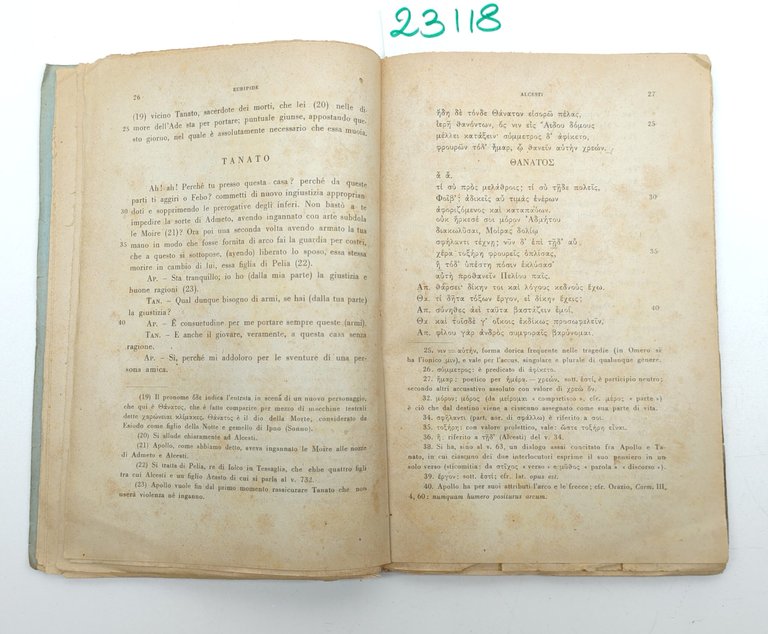 23118
26
EURIPIDE
(19) vicino Tanato, sacerdote dei morti, che lei (20) nelle di-
25 more dell'Ade sta per portare; puntuale giunse, appostando que-
sto giorno, nel quale è assolutamente necessario che essa muoia.
TANATO
Ah! ah! Perché tu presso questa casa? perché da queste
parti ti aggiri o Febo? commetti di nuovo ingiustizia approprian-
30 doti e sopprimendo le prerogative degli inferi. Non bastò a te
impedire la sorte di Admeto, avendo ingannato con arte subdola
le Moire (21)? Ora poi una seconda volta avendo armato la tua
35 mano in modo che fosse fornita di arco fai la guardia per costei,
che a questo si sottopose, (avendo) liberato lo sposo, essa stessa
morire in cambio di lui, essa figlia di Pelia (22).
AP. – Sta tranquillo; io ho (dalla mia parte) la giustizia e
buone ragioni (23).
TAN. – Qual dunque bisogno di armi, se hai (dalla tua parte)
la giustizia?
40 AP. – È consuetudine per me portare sempre queste (armi).
TAN. – E anche il giovare, veramente, a questa casa senza
ragione.
AP. – Sì, perché mi addoloro per le sventure di una per-
sona amica.
(19) Il pronome όδε indica l'entrata in scena di un nuovo personaggio,
che qui è Θάνατος, che è fatto comparire per mezzo di macchine teatrali
dette χαρώνειαι κλίμακες. Θάνατος è il dio della Morte, considerato da
Esiodo come figlio della Notte e gemello di Ipno (Sonno).
(20) Si allude chiaramente ad Alcesti.
(21) Apollo, come abbiamo detto, aveva ingannato le Moire alle nozze
di Admeto e Alcesti.
(22) Si tratta di Pelia, re di Iolco in Tessaglia, che ebbe quattro figli
tra cui Alcesti e un figlio Acasto di cui si parla al v. 732.
(23) Apollo vuole fin dal primo momento rassicurare Tanato che non
userà violenza né inganno.
ALCESTI
27
ἤδη δὲ τόνδε Θάνατον εἰσορῶ πέλας,
ἱερῆ θανόντων, ὅς νιν εἰς Ἅιδου δόμους 25
μέλλει κατάξειν· σύμμετρος δ' ἀφίκετο,
φρουρῶν τόδ' ἦμαρ, ᾧ θανεῖν αὐτὴν χρεών.
ΘΑΝΑΤΟΣ
ἆ ἆ.
τί σὺ πρὸς μελάθροις; τί σὺ τῇδε πολεῖς,
Φοῖβ'; ἀδικεῖς αὖ τιμὰς ἐνέρων 30
ἀφοριζόμενος καὶ καταπαύων.
οὐκ ἤρκεσέ σοι μόρον Ἀδμήτου
διακωλῦσαι, Μοίρας δολίῳ
σφήλαντι τέχνῃ; νῦν δ' ἐπὶ τῇδ' αὖ
χέρα τοξήρη φρουρεῖς ὁπλίσας, 35
ἣ τόδ' ὑπέστη πόσιν ἐκλύσασ'
αὐτὴ προθανεῖν Πελίου παῖς.
Απ. θάρσει· δίκην τοι καὶ λόγους κεδνοὺς ἔχω.
Θα. τί δῆτα τόξων ἔργον, εἰ δίκην ἔχεις;
Απ. σύνηθες ἀεὶ ταῦτα βαστάζειν ἐμοί, 40
Θα. καὶ τοῖσδέ γ' οἴκοις ἐκδίκως προσωφελεῖν.
Απ. φίλου γὰρ ἀνδρὸς συμφοραῖς βαρύνομαι.
25. νιν = αὐτήν, forma dorica frequente nelle tragedie (in Omero si
ha l'ionico μιν), e vale per l'accus. singolare e plurale di qualunque genere.
26. σύμμετρος: è predicato di ἀφίκετο.
27. ἦμαρ: poetico per ἡμέρα. – χρεών, sott. ἐστί, è participio neutro;
secondo altri accusativo assoluto con valore di χρεὼ ὄν.
32. μόρον: μόρος (da μείρομαι « compartisco », cfr. μέρος « parte »)
è ciò che dal destino viene a ciascuno assegnato come sua parte di vita.
34. σφήλαντι (part. aor. di σφάλλω) è riferito a σοι.
35. τοξήρη: con valore prolettivo, vale: ὥστε τοξήρη εἶναι.
36. ἥ: riferito a τῇδ' (Alcesti) del v. 34.
38. Si ha, sino al v. 63, un dialogo assai concitato fra Apollo e Ta-
nato, in cui ciascuno dei due interlocutori esprime il suo pensiero in un
solo verso (sticomitia: da στίχος « verso » e μῦθος « parola » « discorso »).
39. ἔργον: sott. ἐστί; cfr. lat. opus est.
40. Apollo ha per suoi attributi l'arco e le frecce; cfr. Orazio, Carm. III,
4, 60: numquam humero positurus arcum.